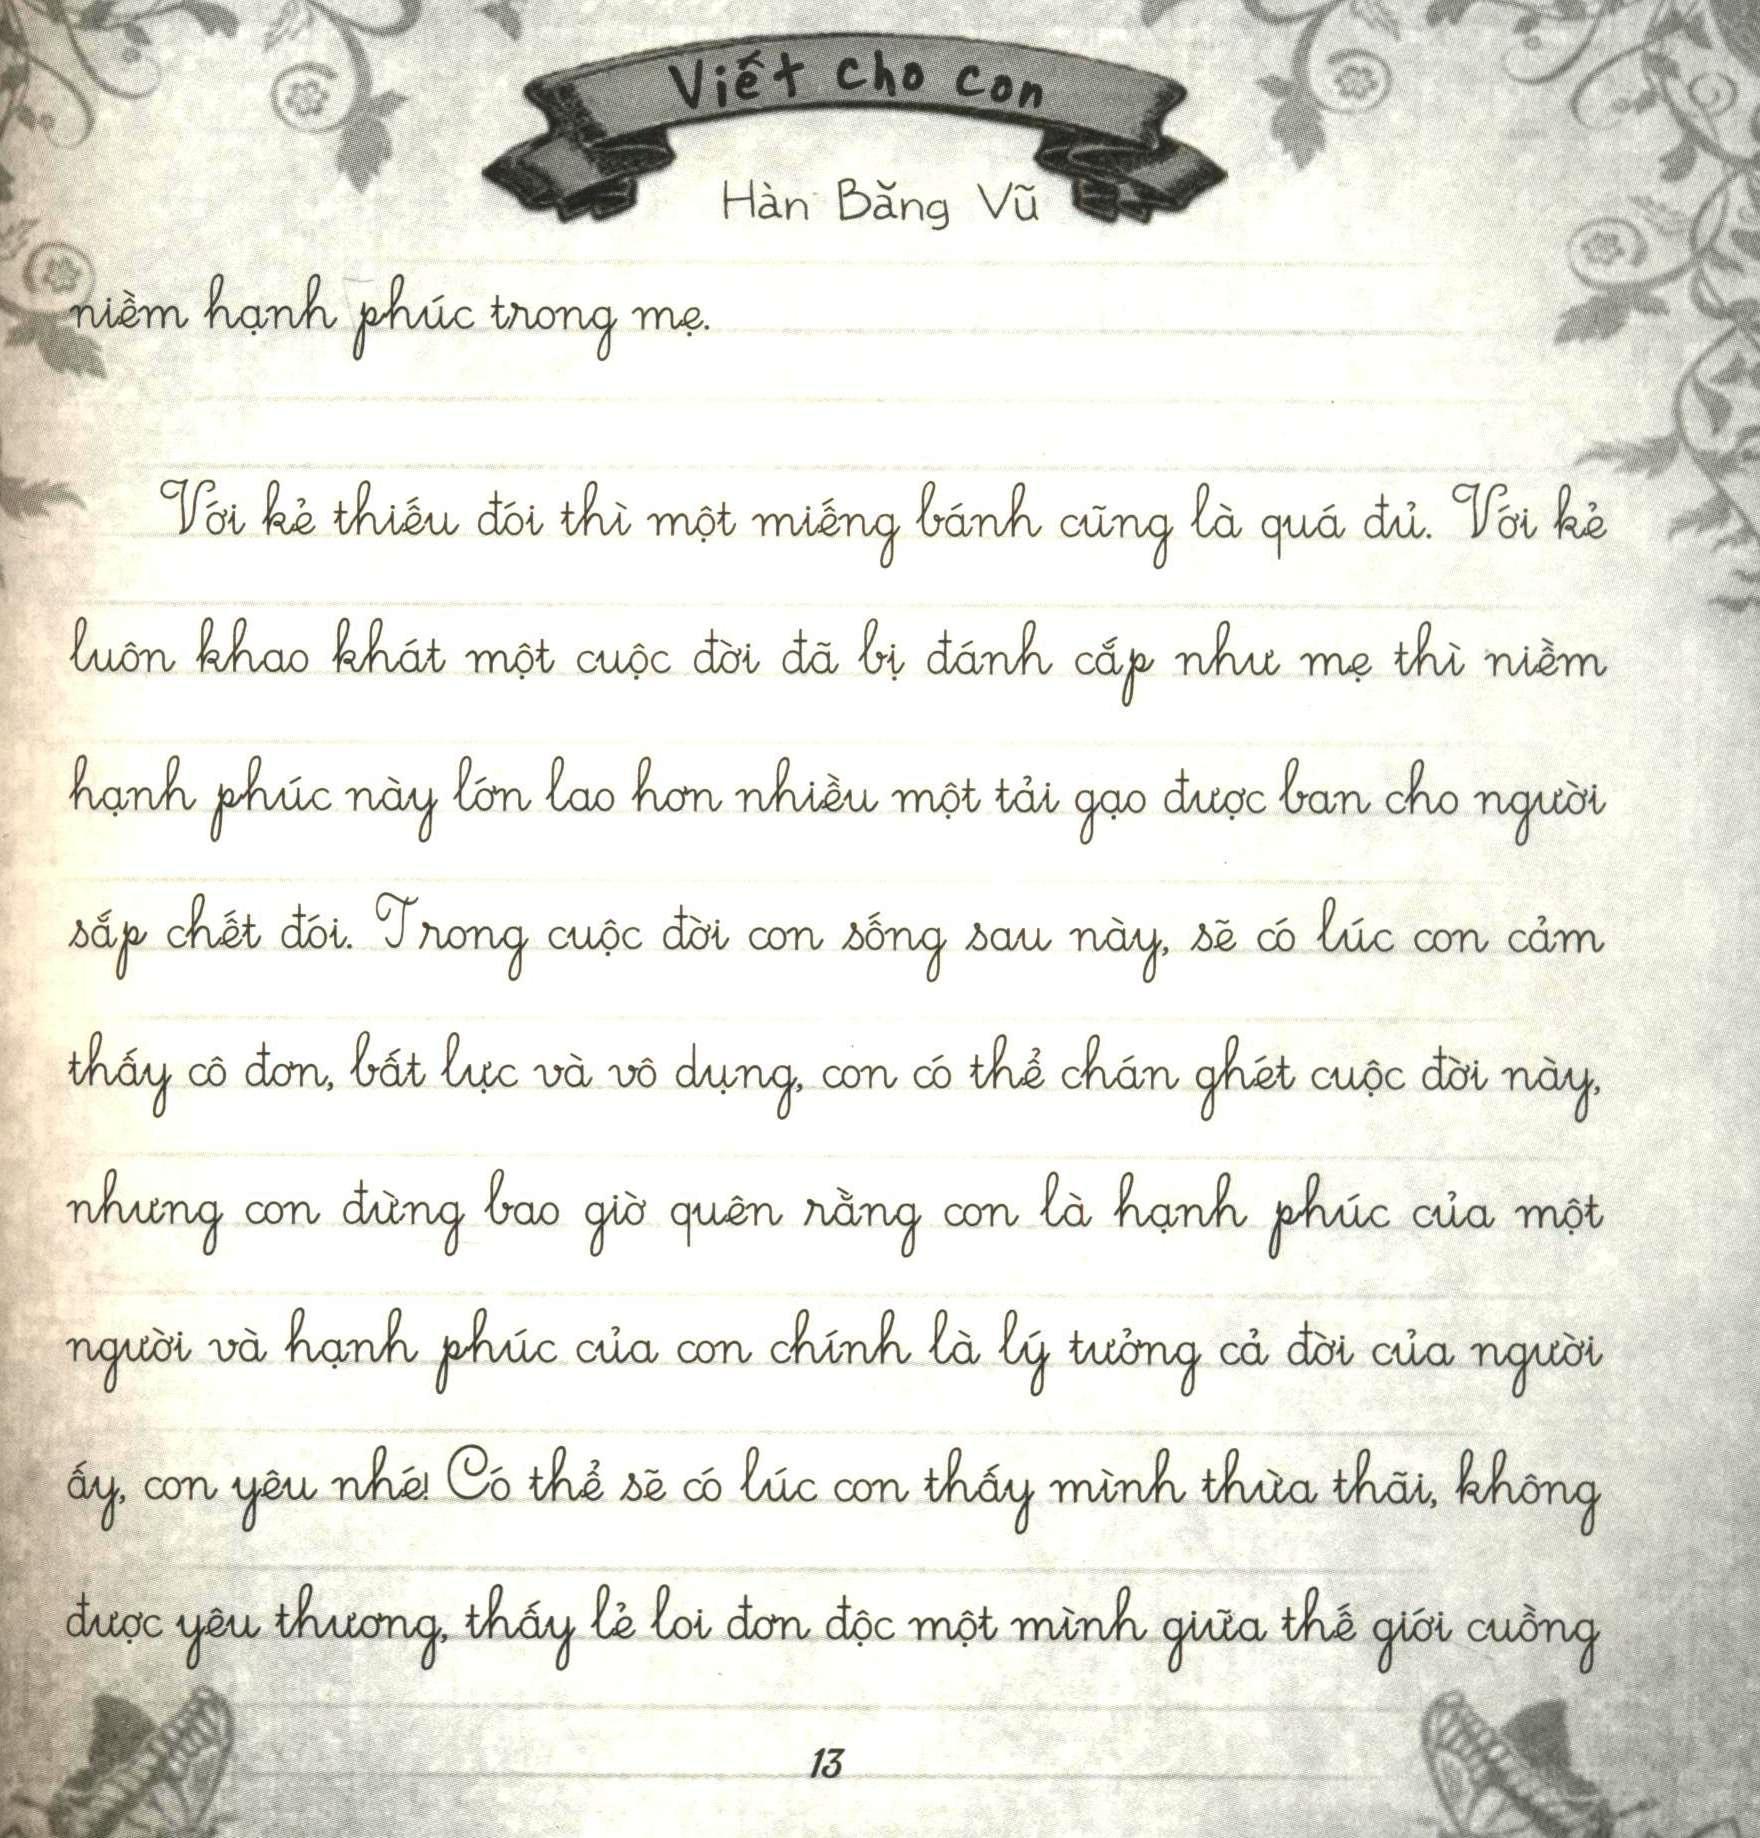 Viết cho con
Hàn Băng Vũ
niềm hạnh phúc trong mẹ.
Với kẻ thiếu đói thì một miếng bánh cũng là quá đủ. Với kẻ
luôn khao khát một cuộc đời đã bị đánh cắp như mẹ thì niềm
hạnh phúc này lớn lao hơn nhiều một tải gạo được ban cho người
sắp chết đói. Trong cuộc đời con sống sau này, sẽ có lúc con cảm
thấy cô đơn, bất lực và vô dụng, con có thể chán ghét cuộc đời này,
nhưng con đừng bao giờ quên rằng con là hạnh phúc của một
người và hạnh phúc của con chính là lý tưởng cả đời của người
ấy, con yêu nhé! Có thể sẽ có lúc con thấy mình thừa thãi, không
được yêu thương, thấy lẻ loi đơn độc một mình giữa thế giới cuồng
13